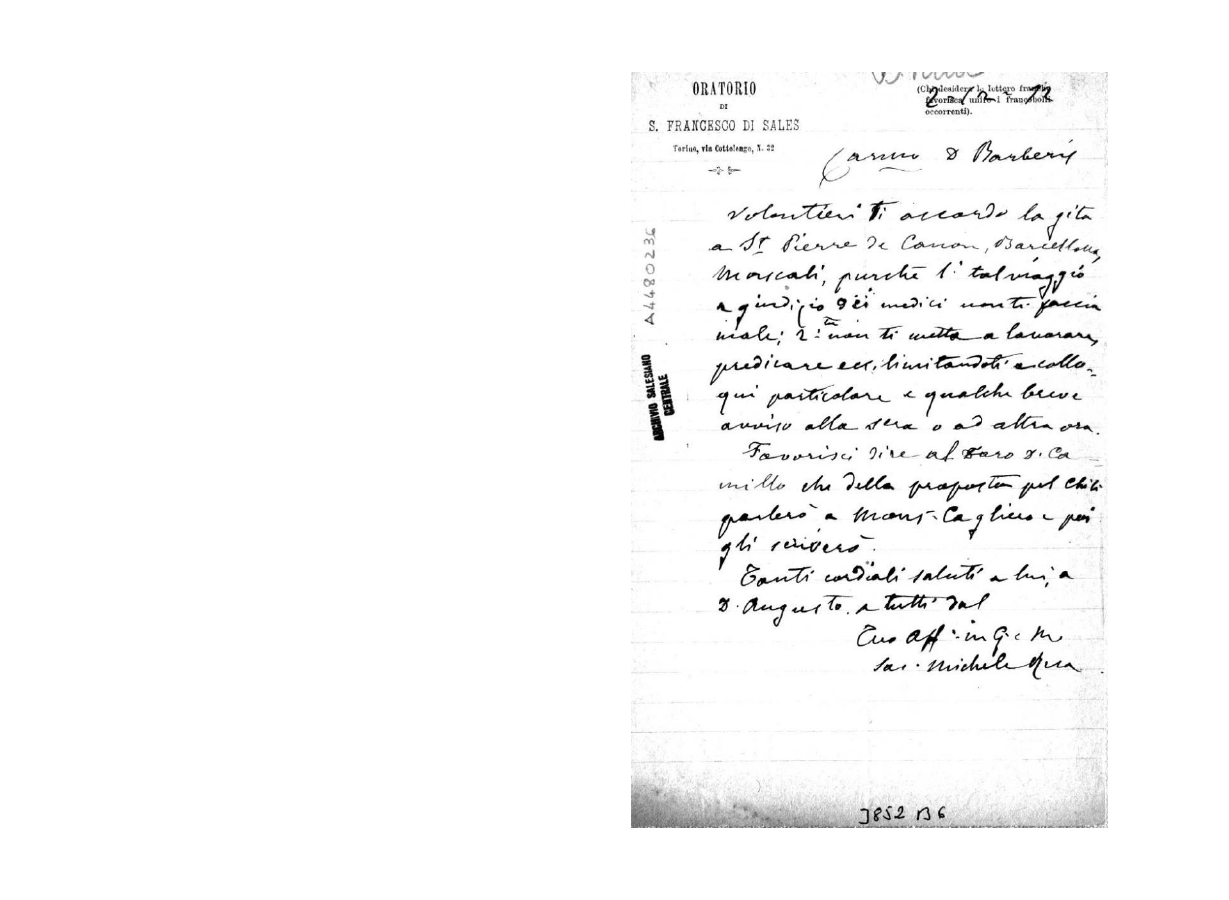 ORATORIO
DI
S. FRANCESCO DI SALES
Torino, via Cottolengo, N. 32
(Chi desidera le lettere
favorisca unire i francobolli
occorrenti).
2-12-12
Carmo D Barberis
Volontieri ti accordo la gita
a St Pierre de Canon, Barcellona,
Mascali, purché 1° tal viaggio
a giudizio dei medici non ti faccia
male; 2° tu non ti metta a lavorare,
predicare ecc, limitandoti a collo-
qui particolare e qualche breve
avviso alla sera o ad altra ora.
Favorisci dire al caro D. Ca
millo che della proposta pel Chilì
parlerò a Mons. Cagliero e poi
gli scriverò.
Tanti cordiali saluti a lui, a
D. Augusto, a tutti dal
Tuo Aff° in G. e M
Sac. Michele Rua
A4480236
ARCHIVIO SALESIANO
CENTRALE
3852 B6